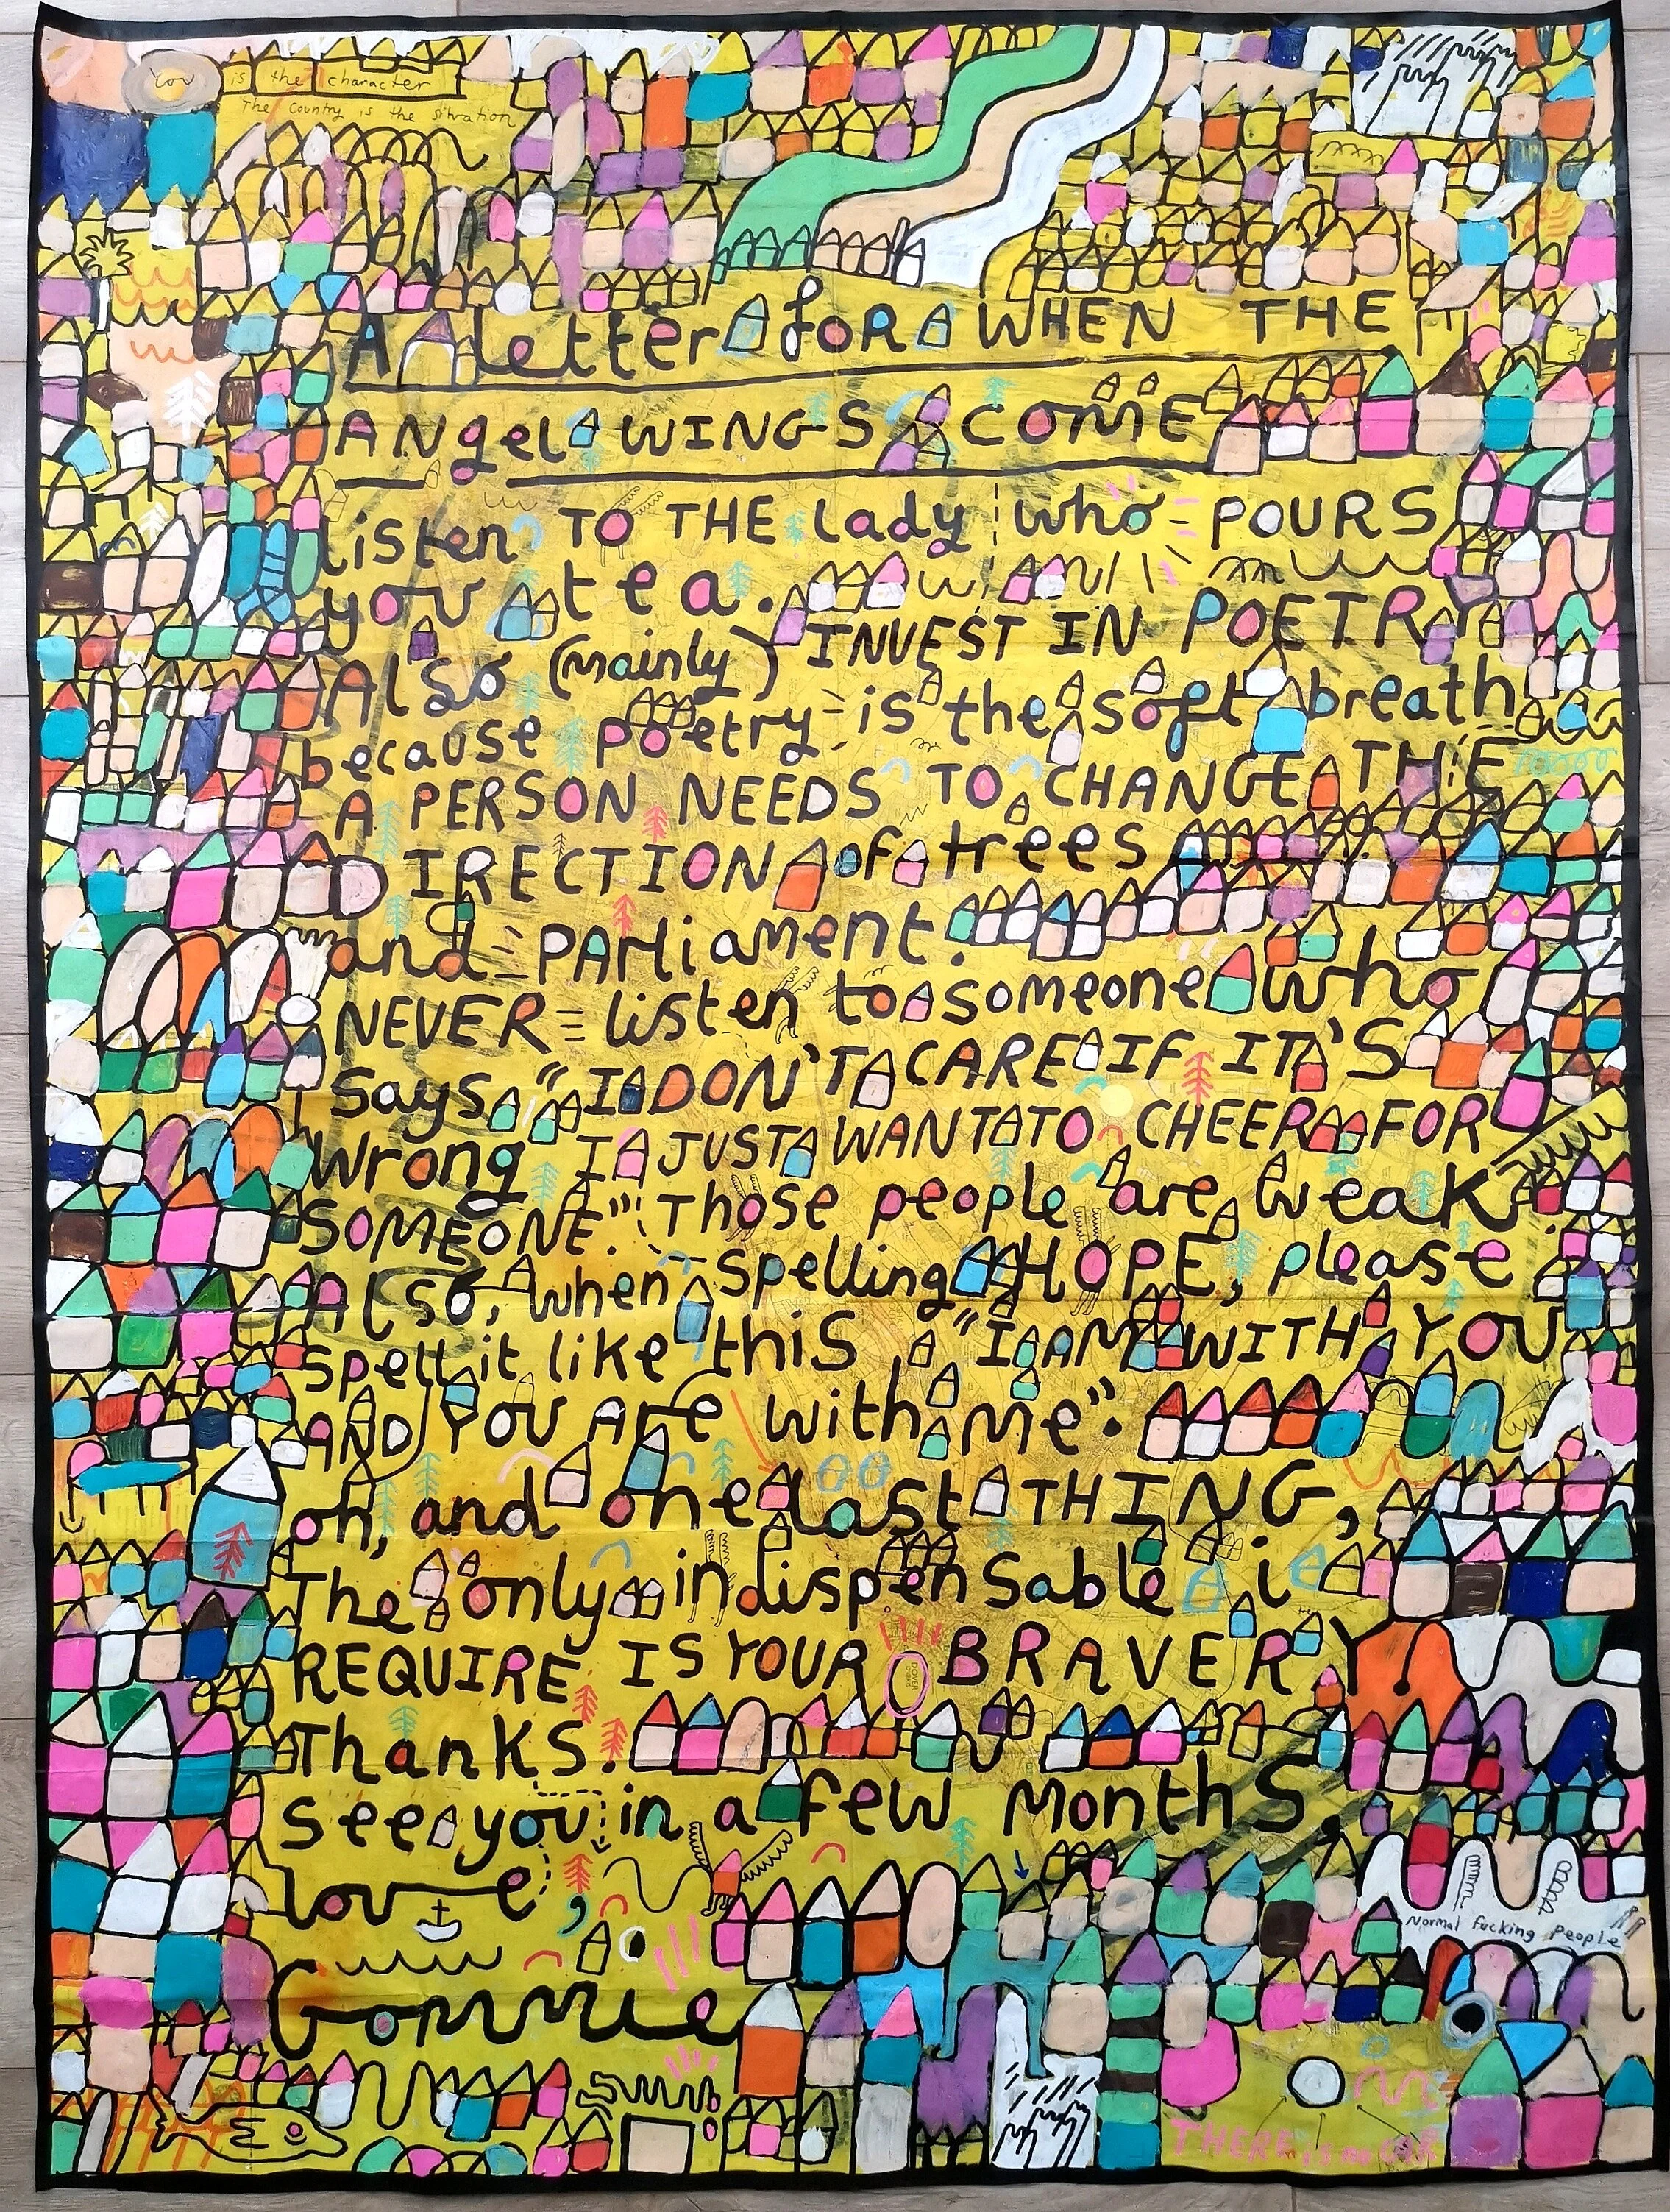 You is the character
The Country is the situation
A letter FOR WHEN THE
ANgel WINGS COME
Listen TO THE lady who POURS
you tea.
Also (mainly) INVEST IN POETRY
because poetry is the soft breath
A PERSON NEEDS TO CHANGE THE
DIRECTION of trees
and PARliament.
NEVER listen to someone who
Says "I DON'T CARE IF IT'S
Wrong I JUST WANT TO CHEER FOR
SOMEONE." Those people are weak
Also, when spelling HOPE, please
spell it like this "I AM WITH YOU
AND YOU ARe with me".
oh, and one last THING,
The only indispensable i
REQUIRE IS YOUR BRAVERY.
DOVER
Thanks.
see you in a few Months.
love,
Connie
Normal fucking people
THERE is no